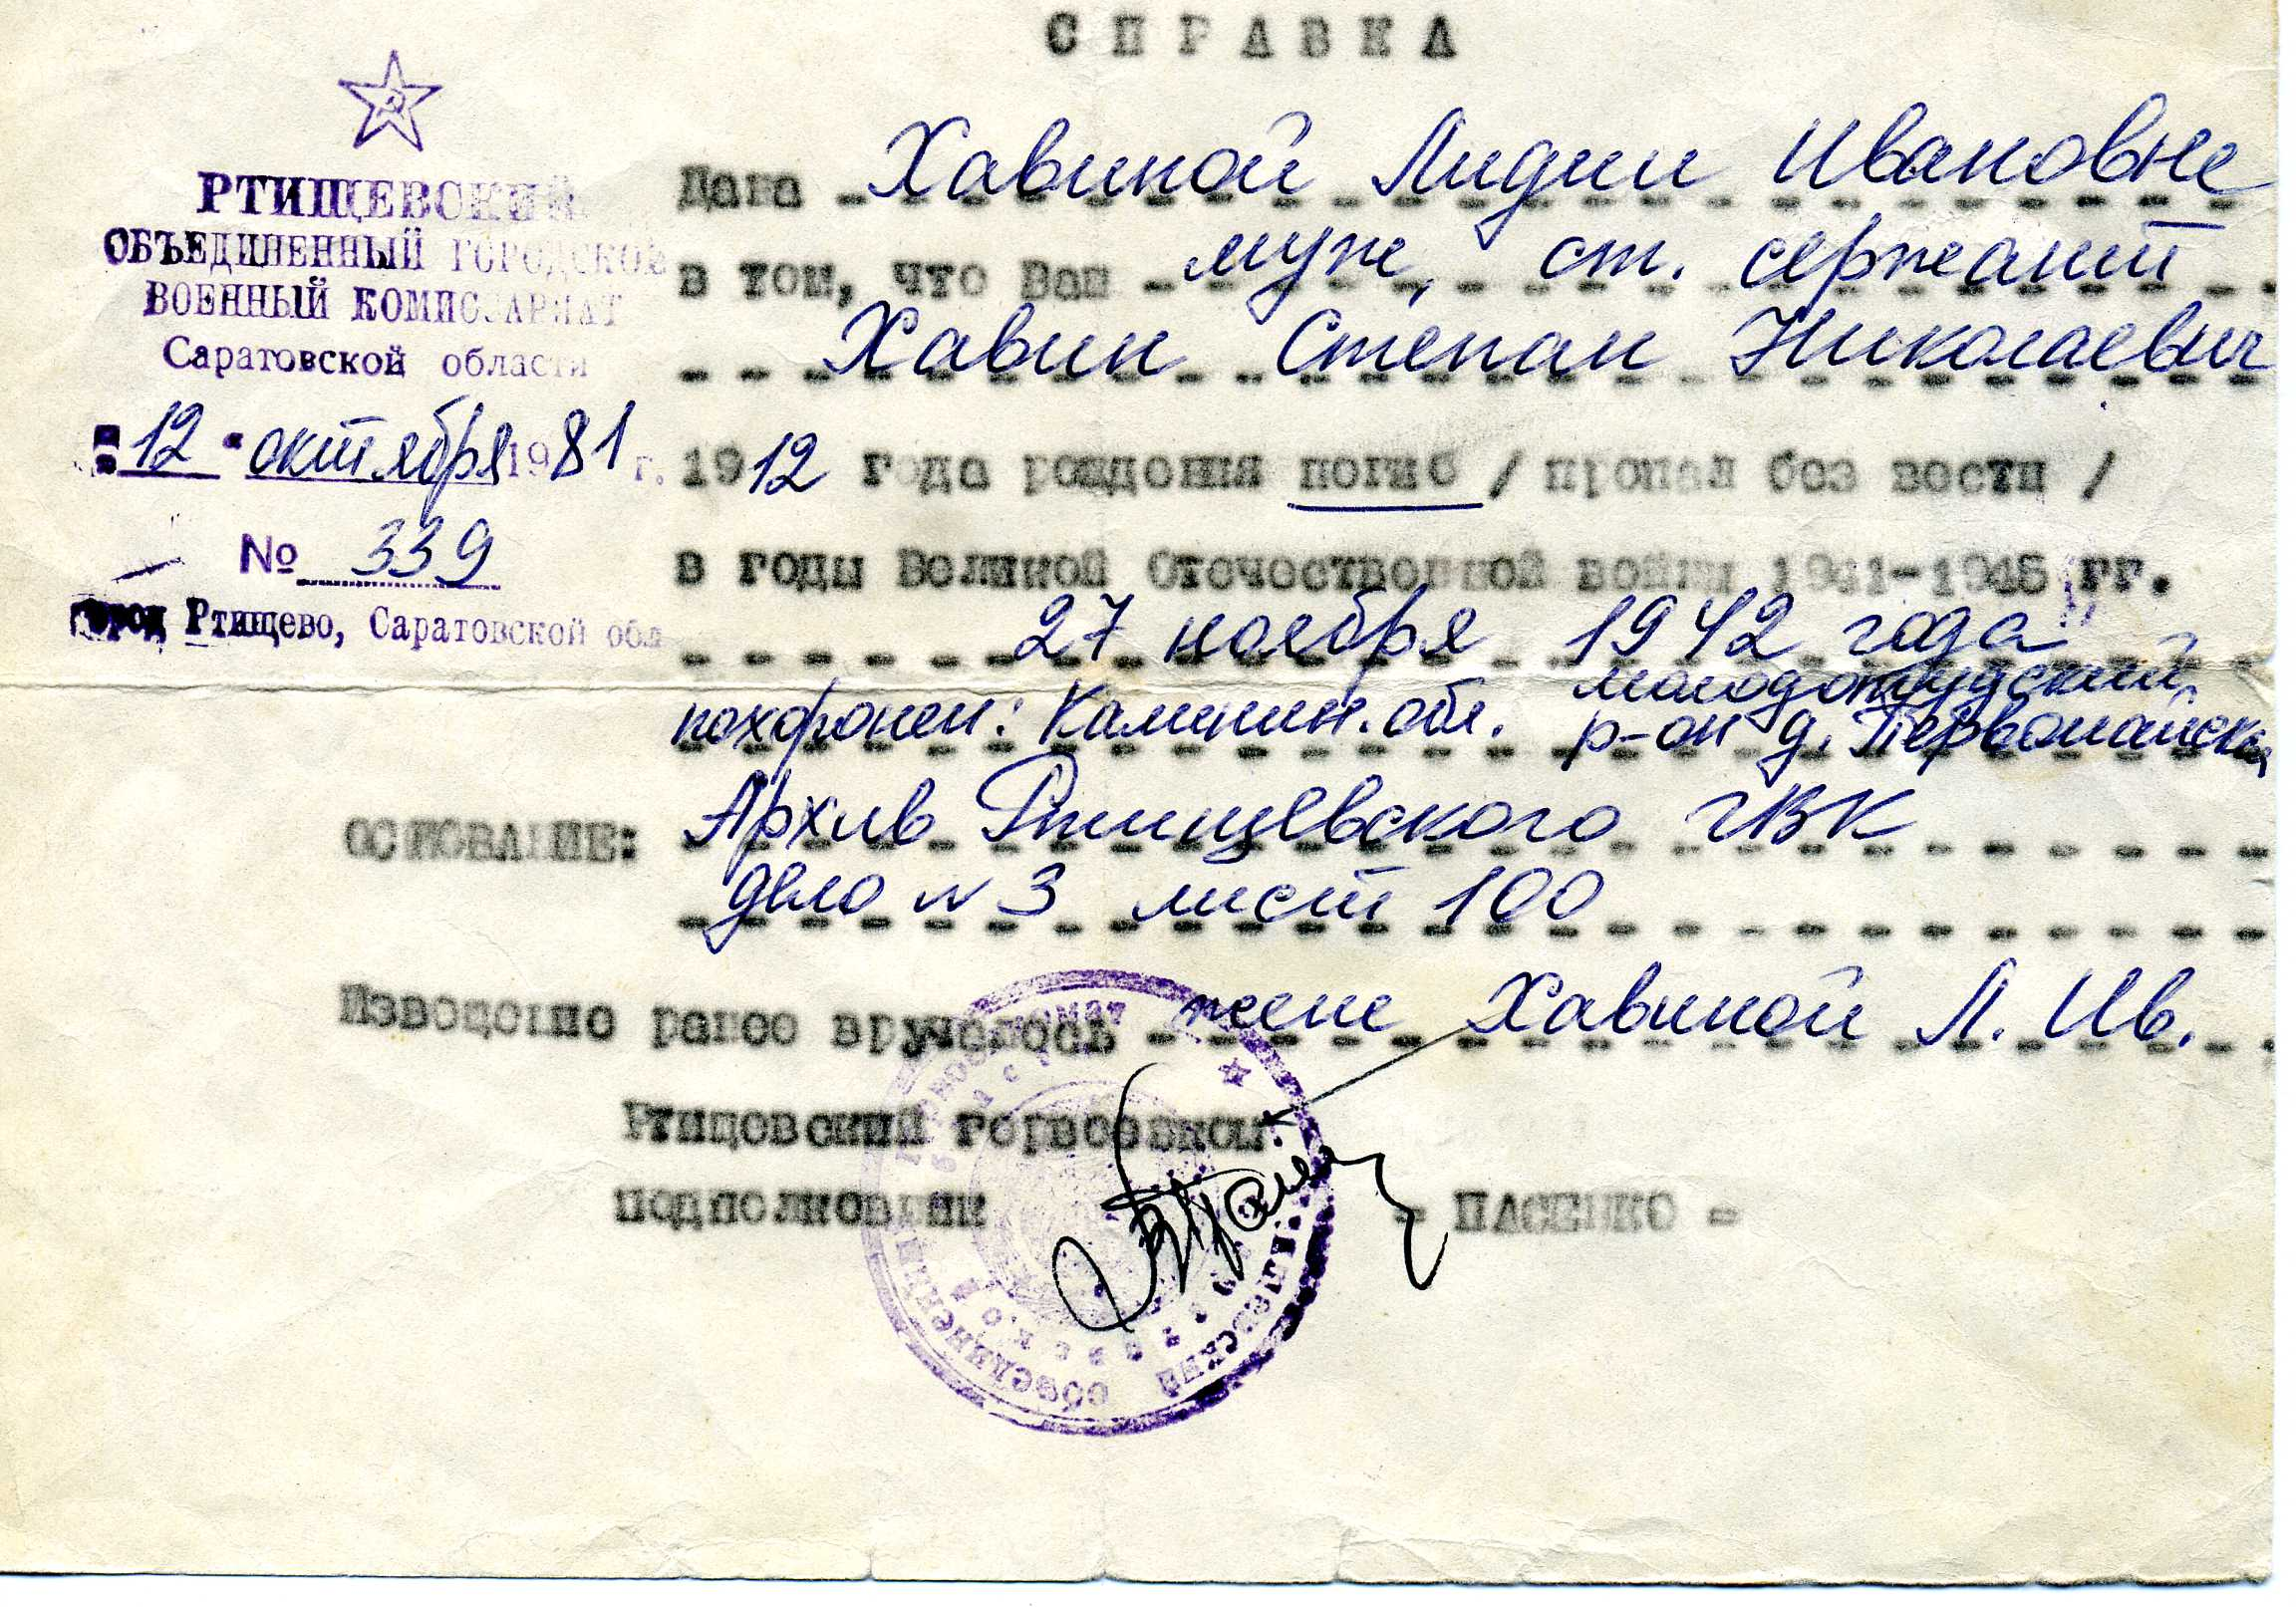 СПРАВКА
РТИЩЕВСКИЙ
ОБЪЕДИНЕННЫЙ ГОРОДСКОЙ
ВОЕННЫЙ КОМИССАРИАТ
Саратовской области
"12" октября 1981 г.
№ 339
город Ртищево, Саратовской обл
Дана Хавиной Лидии Ивановне
в том, что Ваш муж, ст. сержант
Хавин Степан Николаевич
1912 года рождения погиб / пропал без вести /
в годы Великой Отечественной войны 1941-1945 гг.
27 ноября 1942 года
похоронен: Калинин. обл. Молодотудский
р-он д. Первомайска
ОСНОВАНИЕ: Архив Ртищевского ГВК
дело № 3 лист 100
Извещение ранее вручалось жене Хавиной Л. Ив.
Ртищевский горвоенком
подполковник - ПАСЕНКО -
ОБЪЕДИНЕННЫЙ